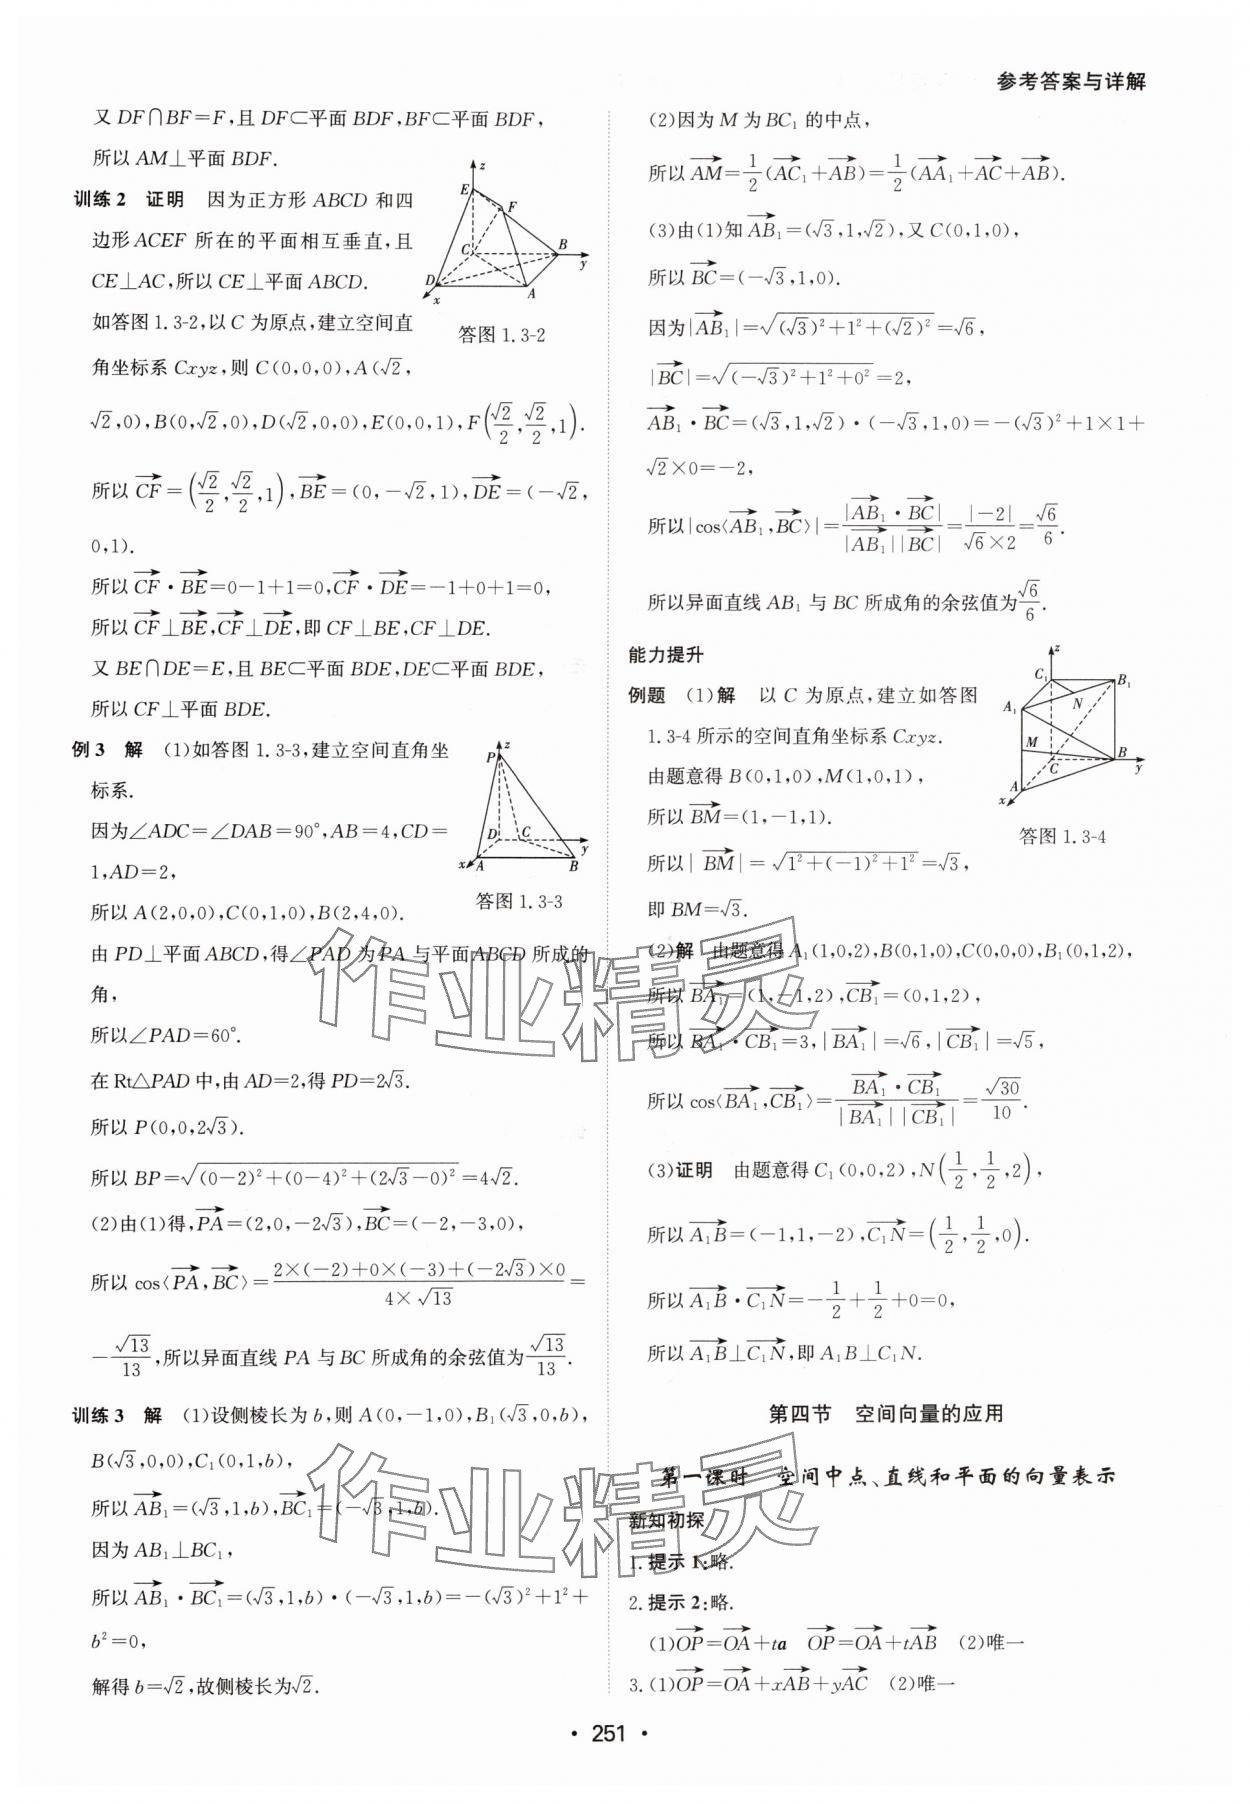 参考答案与详解
又 DF∩BF=F,且 DF⊂平面 BDF,BF⊂平面 BDF,
所以 AM⊥平面 BDF.
训练2 证明 因为正方形 ABCD 和四
边形 ACEF 所在的平面相互垂直,且
CE⊥AC,所以 CE⊥平面 ABCD.
如答图 1.3-2,以 C 为原点,建立空间直
角坐标系 Cxyz,则 C(0,0,0),A(√2,
√2,0),B(0,√2,0),D(√2,0,0),E(0,0,1),F(√2/2,√2/2,1).
z
E
F
C
B
y
D
A
x
答图 1.3-2
所以 →CF=(√2/2,√2/2,1),→BE=(0,-√2,1),→DE=(-√2,
0,1).
所以 →CF·→BE=0-1+1=0,→CF·→DE=-1+0+1=0,
所以 →CF⊥→BE,→CF⊥→DE,即 CF⊥BE,CF⊥DE.
又 BE∩DE=E,且 BE⊂平面 BDE,DE⊂平面 BDE,
所以 CF⊥平面 BDE.
例3 解 (1)如答图 1.3-3,建立空间直角坐
标系.
因为∠ADC=∠DAB=90°,AB=4,CD=
1,AD=2,
所以 A(2,0,0),C(0,1,0),B(2,4,0).
z
P
D
C
y
x
A
B
答图 1.3-3
由 PD⊥平面 ABCD,得∠PAD 为 PA 与平面 ABCD 所成的
角,
所以∠PAD=60°.
在 Rt△PAD 中,由 AD=2,得 PD=2√3.
所以 P(0,0,2√3).
所以 BP=√((0-2)²+(0-4)²+(2√3-0)²)=4√2.
(2)由(1)得,→PA=(2,0,-2√3),→BC=(-2,-3,0),
所以 cos⟨→PA,→BC⟩=(2×(-2)+0×(-3)+(-2√3)×0)/(4×√13)=
-√13/13,所以异面直线 PA 与 BC 所成角的余弦值为√13/13.
训练3 解 (1)设侧棱长为 b,则 A(0,-1,0),B₁(√3,0,b),
B(√3,0,0),C₁(0,1,b),
所以 →AB₁=(√3,1,b),→BC₁=(-√3,1,b).
因为 AB₁⊥BC₁,
所以 →AB₁·→BC₁=(√3,1,b)·(-√3,1,b)=-(√3)²+1²+
b²=0,
解得 b=√2,故侧棱长为√2.
(2)因为 M 为 BC₁ 的中点,
所以 →AM=1/2(→AC₁+→AB)=1/2(→AA₁+→AC+→AB).
(3)由(1)知 →AB₁=(√3,1,√2),又 C(0,1,0),
所以 →BC=(-√3,1,0).
因为|→AB₁|=√((√3)²+1²+(√2)²)=√6,
|→BC|=√((-√3)²+1²+0²)=2,
→AB₁·→BC=(√3,1,√2)·(-√3,1,0)=-(√3)²+1×1+
√2×0=-2,
所以|cos⟨→AB₁,→BC⟩|=|→AB₁·→BC|/(|→AB₁||→BC|)=|-2|/(√6×2)=√6/6.
所以异面直线 AB₁ 与 BC 所成角的余弦值为√6/6.
能力提升
例题 (1)解 以 C 为原点,建立如答图
1.3-4 所示的空间直角坐标系 Cxyz.
由题意得 B(0,1,0),M(1,0,1),
所以 →BM=(1,-1,1).
所以|→BM|=√(1²+(-1)²+1²)=√3,
即 BM=√3.
z
C₁
B₁
A₁
N
M
C
B
y
A
x
答图 1.3-4
(2)解 由题意得 A₁(1,0,2),B(0,1,0),C(0,0,0),B₁(0,1,2),
所以 →BA₁=(1,-1,2),→CB₁=(0,1,2),
所以 →BA₁·→CB₁=3,|→BA₁|=√6,|→CB₁|=√5,
所以 cos⟨→BA₁,→CB₁⟩=→BA₁·→CB₁/(|→BA₁||→CB₁|)=√30/10.
(3)证明 由题意得 C₁(0,0,2),N(1/2,1/2,2),
所以 →A₁B=(-1,1,-2),→C₁N=(1/2,1/2,0).
所以 →A₁B·→C₁N=-1/2+1/2+0=0,
所以 →A₁B⊥→C₁N,即 A₁B⊥C₁N.
第四节 空间向量的应用
第一课时 空间中点、直线和平面的向量表示
新知初探
1.提示1:略.
2.提示2:略.
(1)→OP=→OA+ta →OP=→OA+t→AB (2)唯一
3.(1)→OP=→OA+x→AB+y→AC (2)唯一
作业精灵
作业精灵
• 251 •